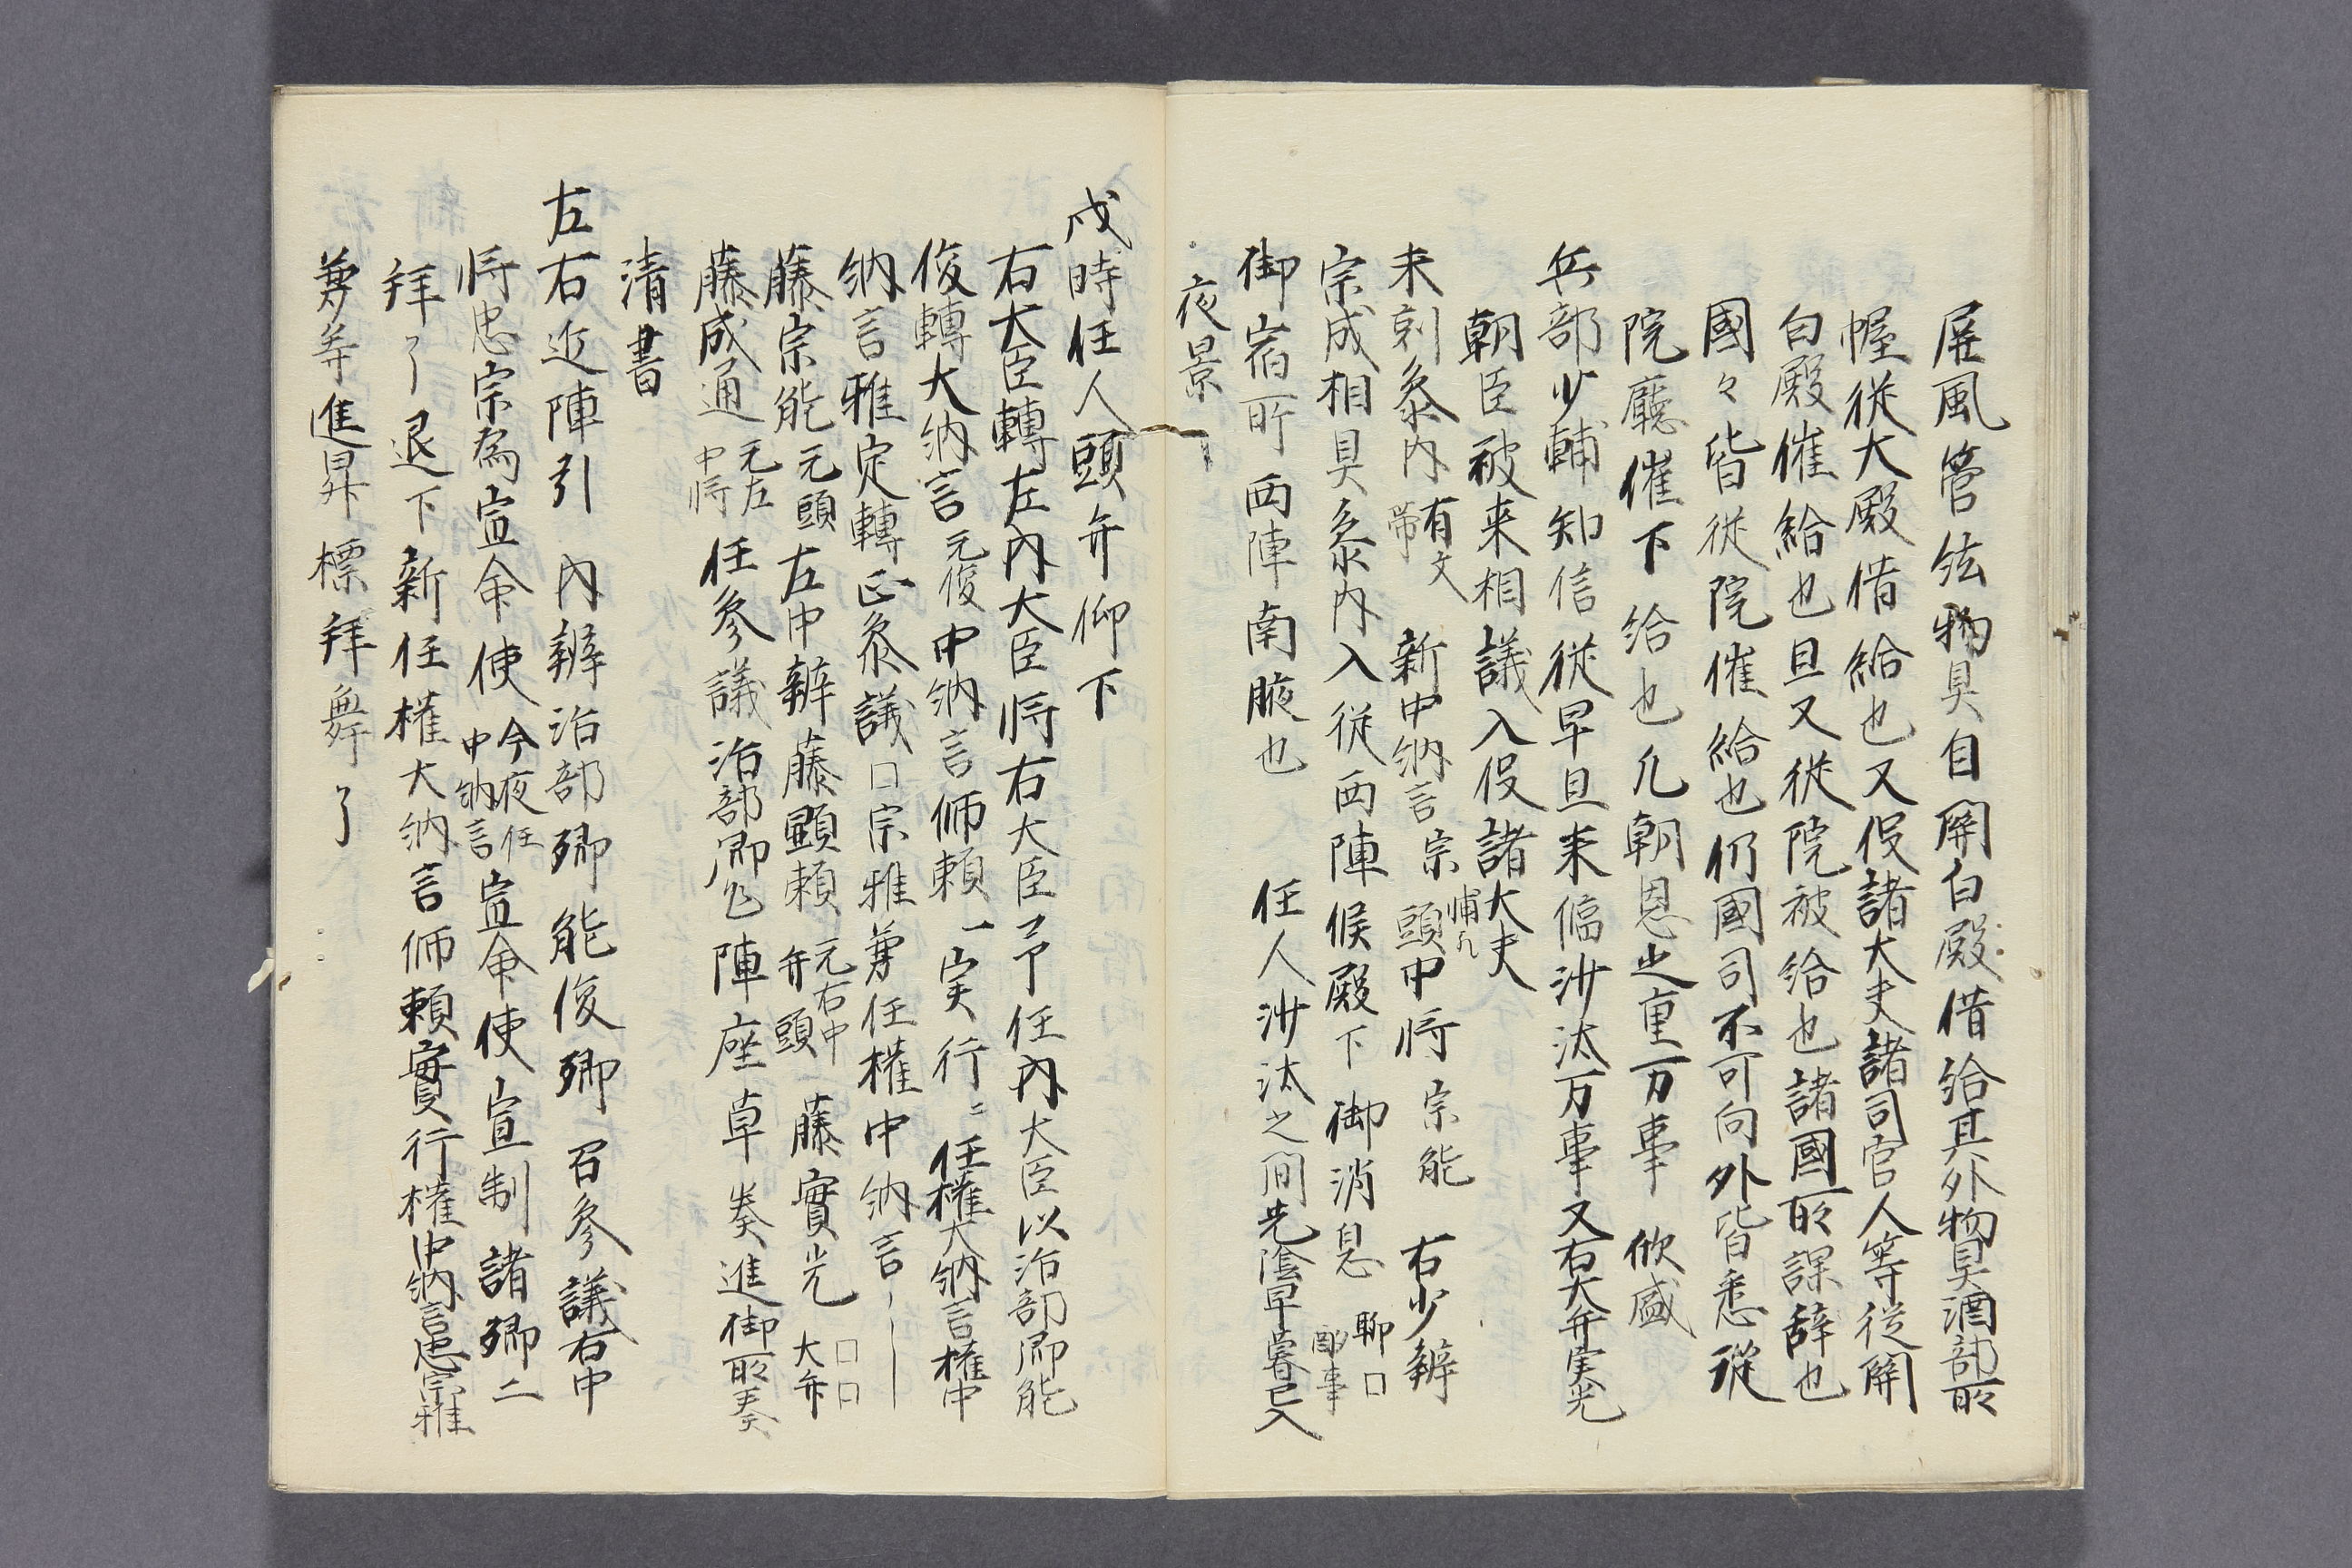 屏風管絃物具自関白殿借給其外物具酒部所
幄従大殿借給也又役諸大夫諸司官人等従関
白殿催給也且又従院被給也諸國所課辞也
國々皆従院催給也仍國司不可向外皆悉従
院廳催下給也凡朝恩之重万事欣感
兵部少輔知信従早旦来偏沙汰万事又右大弁実光
朝臣被来相議入役諸大夫
未剋参内有文帯 新中納言宗輔 頭中将宗能 右少辨
宗成相具参内入従西陣候殿下御消息聊□
御宿所西陣南腋也 任人沙汰之間光陰早暮已入
夜景
戌時任人頭弁仰下
右大臣轉左内大臣将右大臣予任内大臣以治部卿能
俊轉大納言元俊中納言師頼一実行二任權大納言權中
納言雅定轉正参議□宗雅兼任權中納言
藤宗能元頭左中辨藤顕頼元右中弁頭藤實光□□大弁
藤成通元左中将任参議治部卿 陣座草奏進御所奏
清書
左右近陣引 内辨治部卿能俊卿召参議右中
将忠宗為宣命使今夜任中納言宣命使宣制諸卿二
拜了退下新任權大納言師頼實行權中納言忠宗雅
兼等進昇標拜舞了